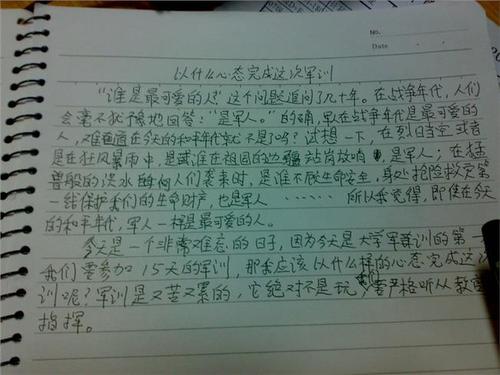 No.
Date
以什么心态完成这次军训
"谁是最可爱的人"这个问题追问了几十年。在战争年代,人们
会毫不犹豫地回答:"是军人。"的确,军人在战争年代是最可爱的
人,难道在今天的和平年代就不是了吗?试想一下,在烈日当空或者
是在狂风暴雨中,是谁在祖国的边疆站岗放哨,是军人;在猛
兽般的洪水向人们袭来时,是谁不顾生命安全,身处抢险救灾第
一线保护我们的生命财产,也是军人……所以我觉得,即使在今天
的和平年代,军人一样是最可爱的人。
今天是一个非常难忘的日子,因为今天是大学军训的第一
我们要参加15天的军训,那我应该以什么样的心态完成这次
训呢?军训是又苦又累的,它绝对不是玩,要严格听从教官
指挥。